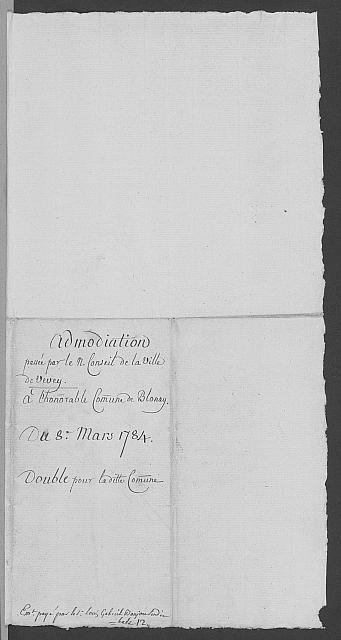 Admodiation
passée par le N. Conseil de la Ville
de Vevey.
à l'honorable Comune de Blonay.
Du 8.e Mars 1784.
Double pour ladite Comune
payé par le Sr. Louis Gabriel